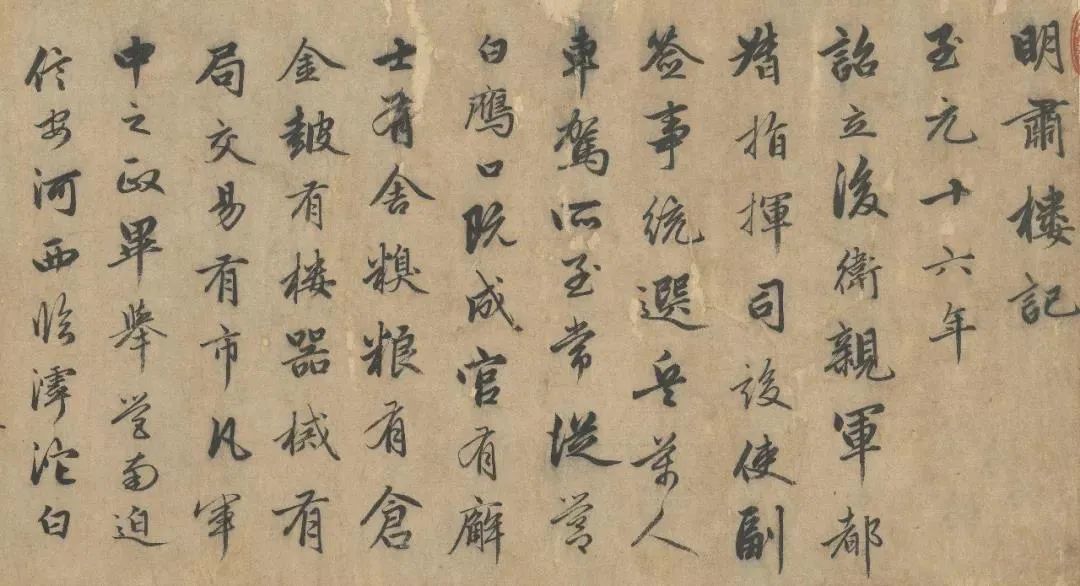 明肅樓記
至元十六年
詔立後衛親軍都
指揮司設使副
簽事統選兵萬人
車駕所至常從營
白鴈口既成官有廨
士有舍糗粮有倉
金鼓有樓器械有
局交易有市凡軍
中之政畢舉學南迫
信安河西臨滹沱白